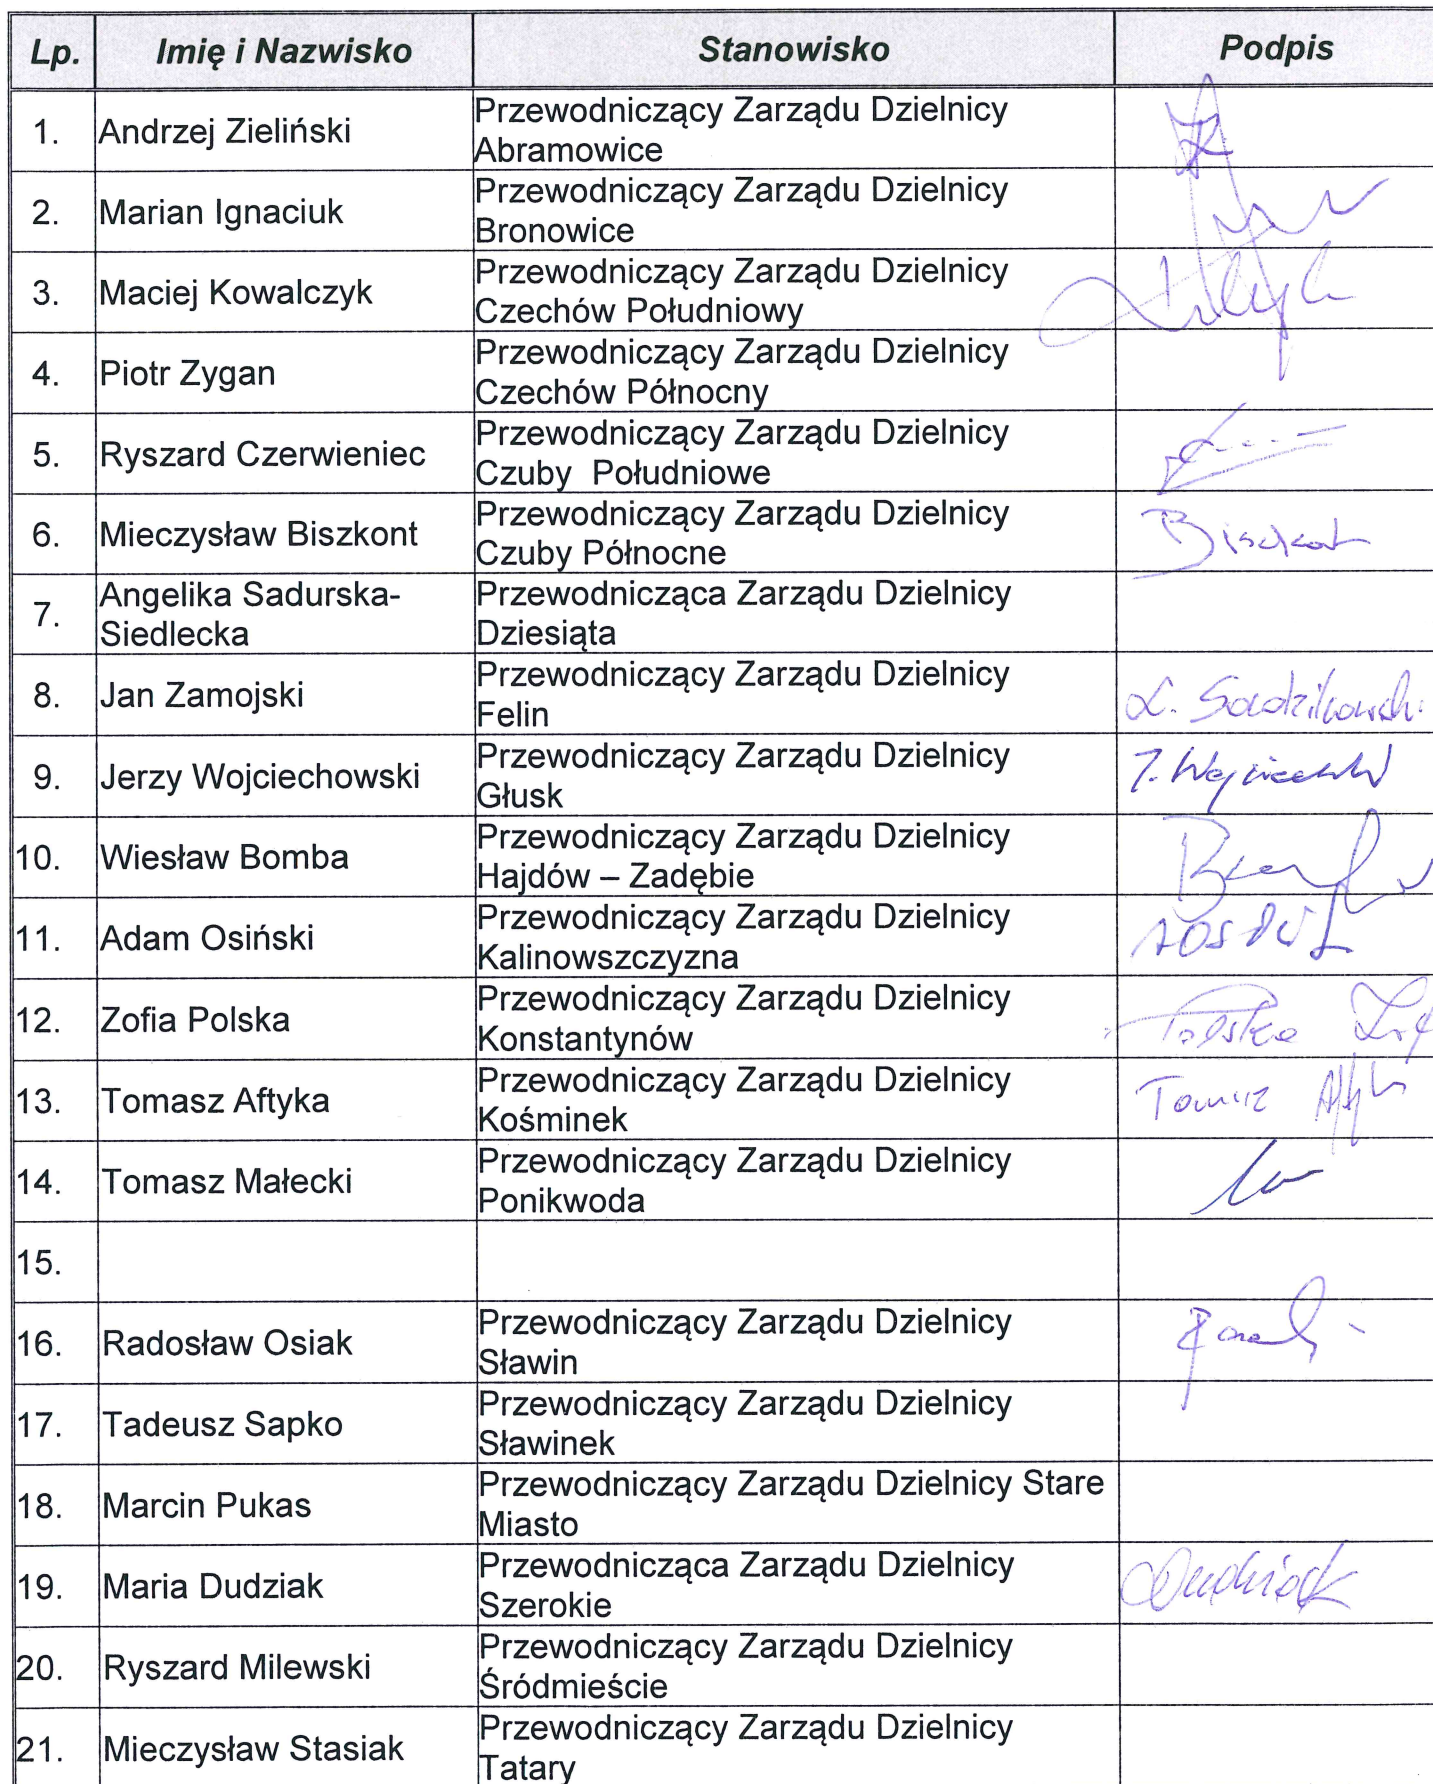 Lp. Imię i Nazwisko Stanowisko Podpis
1. Andrzej Zieliński Przewodniczący Zarządu Dzielnicy
Abramowice
2. Marian Ignaciuk Przewodniczący Zarządu Dzielnicy
Bronowice
3. Maciej Kowalczyk Przewodniczący Zarządu Dzielnicy
Czechów Południowy
4. Piotr Zygan Przewodniczący Zarządu Dzielnicy
Czechów Północny
5. Ryszard Czerwieniec Przewodniczący Zarządu Dzielnicy
Czuby Południowe
6. Mieczysław Biszkont Przewodniczący Zarządu Dzielnicy
Czuby Północne
7. Angelika Sadurska-
Siedlecka Przewodnicząca Zarządu Dzielnicy
Dziesiąta
8. Jan Zamojski Przewodniczący Zarządu Dzielnicy
Felin
9. Jerzy Wojciechowski Przewodniczący Zarządu Dzielnicy
Głusk
10. Wiesław Bomba Przewodniczący Zarządu Dzielnicy
Hajdów – Zadębie
11. Adam Osiński Przewodniczący Zarządu Dzielnicy
Kalinowszczyzna
12. Zofia Polska Przewodniczący Zarządu Dzielnicy
Konstantynów Polska
13. Tomasz Aftyka Przewodniczący Zarządu Dzielnicy
Kośminek Tomasz
14. Tomasz Małecki Przewodniczący Zarządu Dzielnicy
Ponikwoda
15.
16. Radosław Osiak Przewodniczący Zarządu Dzielnicy
Sławin
17. Tadeusz Sapko Przewodniczący Zarządu Dzielnicy
Sławinek
18. Marcin Pukas Przewodniczący Zarządu Dzielnicy Stare
Miasto
19. Maria Dudziak Przewodnicząca Zarządu Dzielnicy
Szerokie Dudziak
20. Ryszard Milewski Przewodniczący Zarządu Dzielnicy
Śródmieście
21. Mieczysław Stasiak Przewodniczący Zarządu Dzielnicy
Tatary